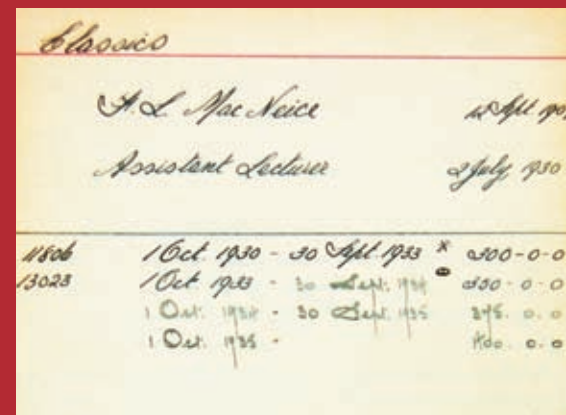 Classics
F. L. Mac Neice 12 Sept. 190
Assistant Lecturer 2 July 1930
11806 1 Oct. 1930 - 30 Sept. 1933 * 300-0-0
13023 1 Oct 1933 - 30 Sept. 1934 350-0-0
1 Oct. 1934 - 30 Sept. 1935 375. 0. 0
1 Oct. 1935 - 400. 0. 0